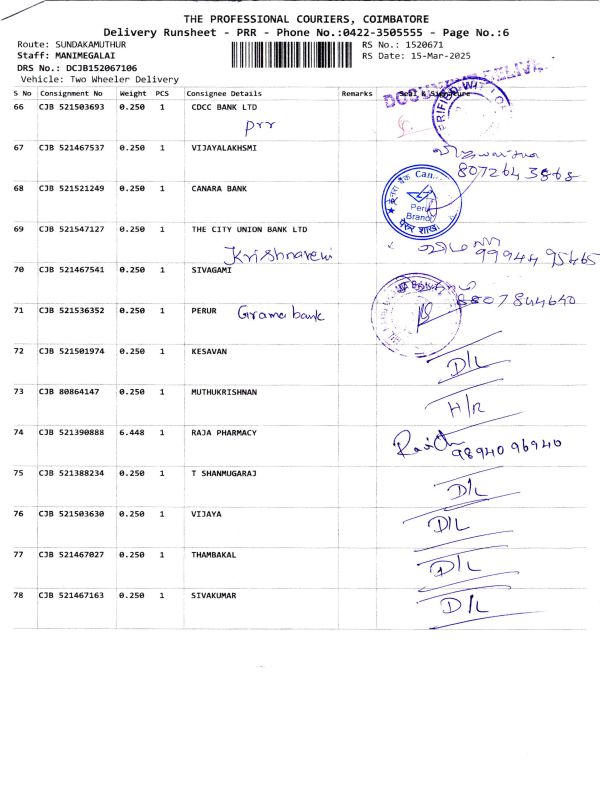 THE PROFESSIONAL COURIERS, COIMBATORE
Delivery Runsheet - PRR - Phone No.:0422-3505555 - Page No.:6
Route: SUNDAKAMUTHUR
RS No.: 1520671
Staff: MANIMEGALAI
RS Date: 15-Mar-2025
DRS No.: DCJB152067106
Vehicle: Two Wheeler Delivery
S No Consignment No Weight PCS Consignee Details Remarks Seal & Signature
66 CJB 521503693 0.250 1 CDCC BANK LTD
prr
67 CJB 521467537 0.250 1 VIJAYALAKHSMI
807264 3868
68 CJB 521521249 0.250 1 CANARA BANK
Branch
69 CJB 521547127 0.250 1 THE CITY UNION BANK LTD
Krishnaveni
99944 95465
70 CJB 521467541 0.250 1 SIVAGAMI
8807844640
71 CJB 521536352 0.250 1 PERUR Grama bank
72 CJB 521501974 0.250 1 KESAVAN
D/L
73 CJB 80864147 0.250 1 MUTHUKRISHNAN
H/R
74 CJB 521390888 6.448 1 RAJA PHARMACY
98940 96940
75 CJB 521388234 0.250 1 T SHANMUGARAJ
D/L
76 CJB 521503630 0.250 1 VIJAYA
D/L
77 CJB 521467027 0.250 1 THAMBAKAL
D/L
78 CJB 521467163 0.250 1 SIVAKUMAR
D/L